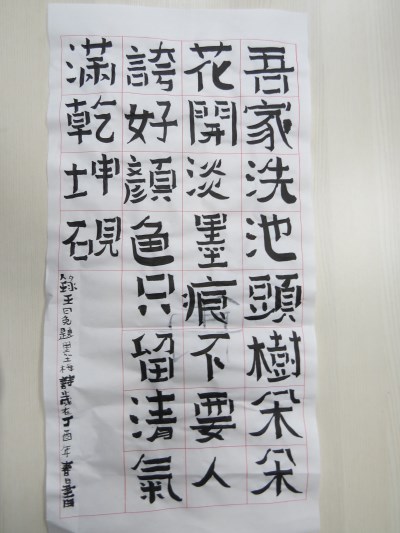 吾家洗池頭樹朵朵
花開淡墨痕不要人
誇好顏色只留清氣
滿乾坤硯
錄王冕題墨梅詩歲在丁酉年春月